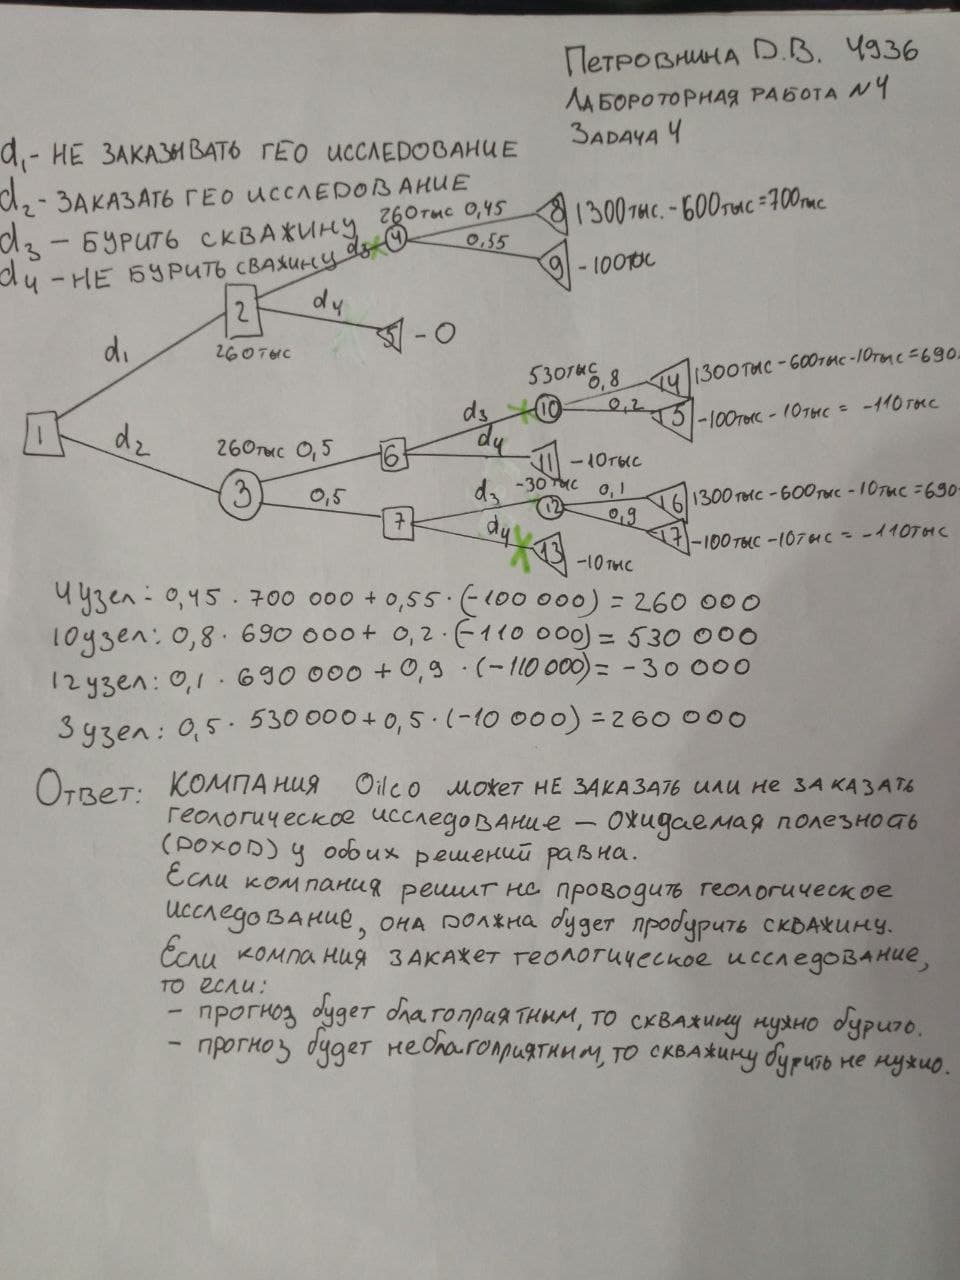 Петровнина D.В. 4936
Лабороторная работа N4
Задача 4
d₁ - не заказывать гео исследование
d₂ - заказать гео исследование
d₃ - бурить скважину
d₄ - не бурить сважину
260тыс 0,45
8 1300тыс. - 600тыс = 700тыс
d₃ 4
0,55
9 -100тыс
2
d₄
5 - 0
260тыс
d₁
1
d₂
530тыс
0,8
14 1300тыс - 600тыс - 10тыс = 690
d₃ 10
0,2
15 -100тыс - 10тыс = -110тыс
260тыс 0,5
6
d₄
11 -10тыс
3
-30тыс
0,5
7
d₃ 12
0,1
16 1300тыс - 600тыс - 10тыс = 690
0,9
17 -100тыс - 10тыс = -110тыс
d₄
13 -10тыс
4 узел: 0,45 · 700 000 + 0,55 · (-100 000) = 260 000
10 узел: 0,8 · 690 000 + 0,2 · (-110 000) = 530 000
12 узел: 0,1 · 690 000 + 0,9 · (-110 000) = -30 000
3 узел: 0,5 · 530 000 + 0,5 · (-10 000) = 260 000
Ответ: Компания Oilco может не заказать или не заказать
геологическое исследование - ожидаемая полезность
(доход) у обоих решений равна.
Если компания решит не проводить геологическое
исследование, она должна будет пробурить скважину.
Если компания закажет геологическое исследование,
то если:
- прогноз будет благоприятным, то скважину нужно бурить.
- прогноз будет неблагоприятным, то скважину бурить не нужно.